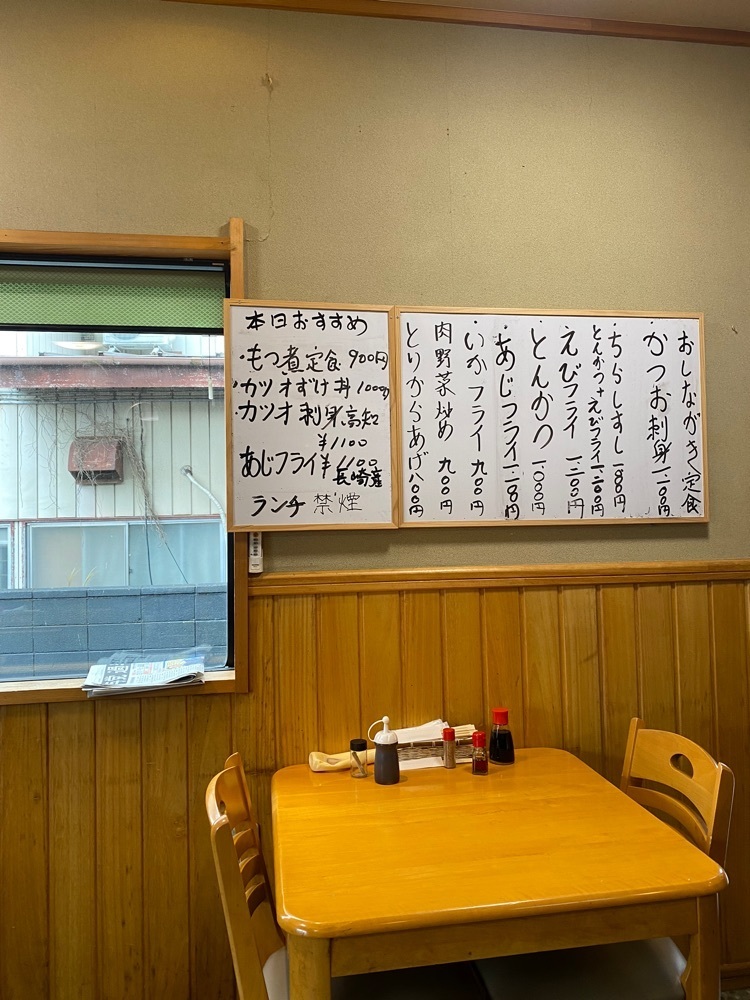 本日おすすめ
・もつ煮定食 900円
・カツオずけ丼 1000円
・カツオ刺身高知
¥1100
あじフライ ¥1100
長崎産
ランチ禁煙
おしながき定食
・かつお刺身一、一〇〇円
・ちらしすし一、一〇〇円
とんかつ+えびフライ一、二〇〇円
えびフライ 一、二〇〇円
・とんかつ 一、〇〇〇円
・あじフライ一、一〇〇円
・いかフライ 九〇〇円
肉野菜炒め 九〇〇円
とりからあげ八〇〇円